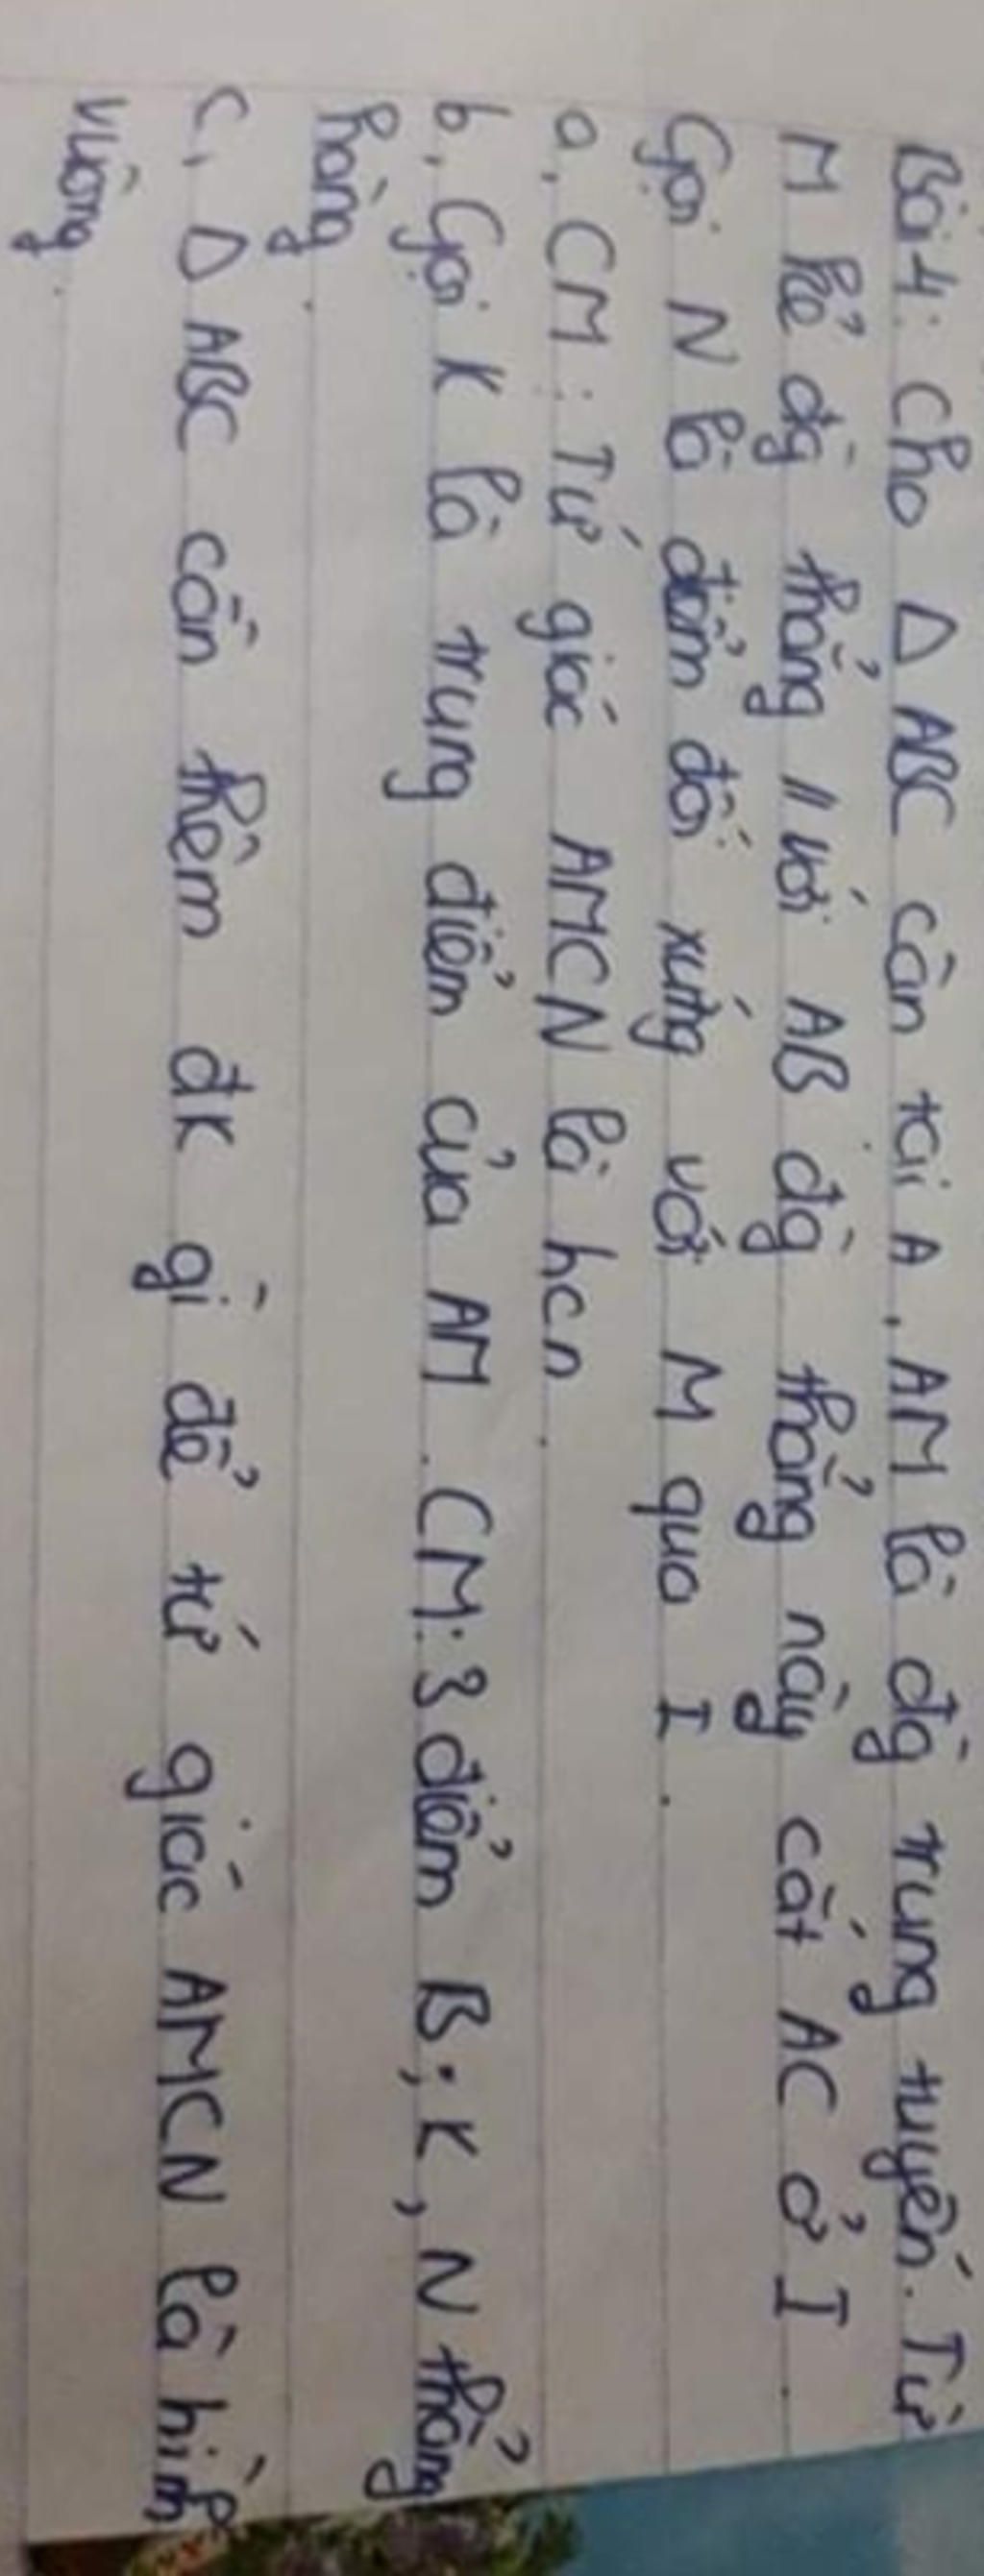 Bài 4: Cho Δ ABC cân tại A, AM là đg trung tuyến. Từ
M kẻ đg thẳng // với AB đg thẳng này cắt AC ở I.
Gọi N là điểm đối xứng với M qua I.
a, CM: Tứ giác AMCN là hcn.
b, Gọi K là trung điểm của AM. CM: 3 điểm B; K, N thẳng
hàng.
c, Δ ABC cần thêm đk gì để tứ giác AMCN là hình
vuông.